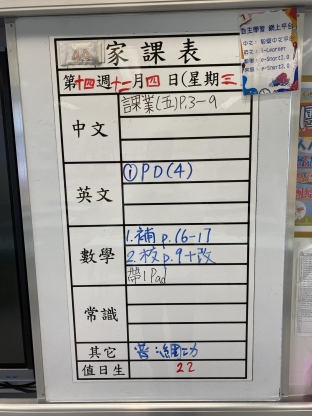 家課表
第十四週十二月四日(星期三
中文
課業(五)P.3-9
英文
①PD(4)
數學
1.補 p.16-17
2.校 p.9+改
帶iPad
常識
其它
普:網功
值日生
22
自主學習 網上平台
i-Learner
e-Smart3.0
e-Smart3.0